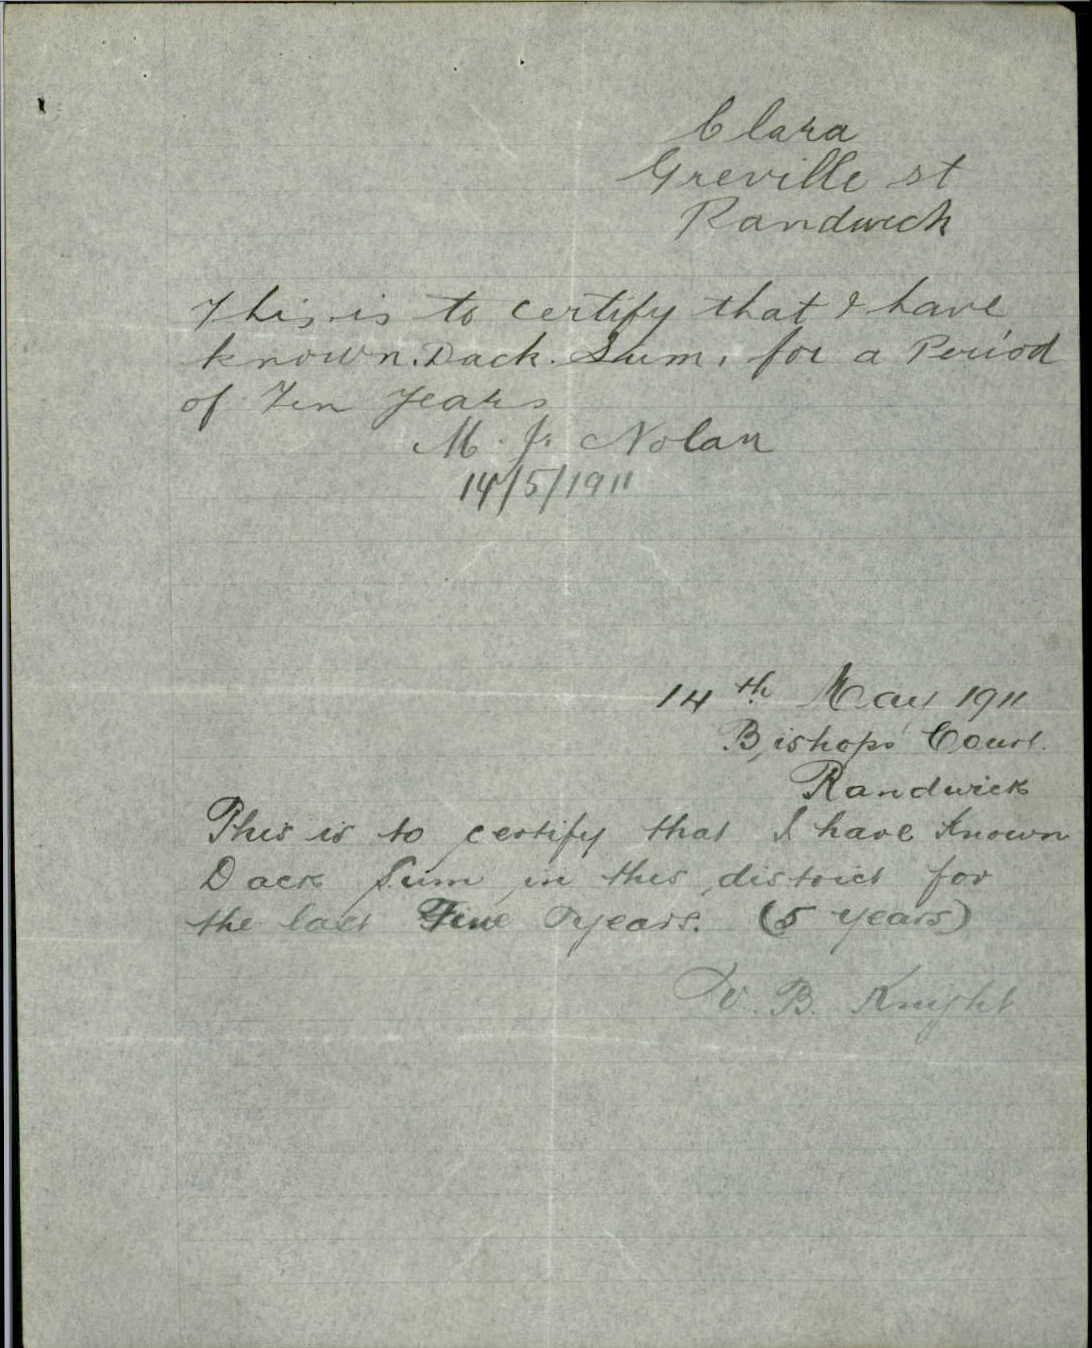 Clara
Greville st
Randwick
This is to certify that I have
known. Dack. Sum, for a Period
of Ten years
M. J. Nolan
14/5/1911
14th May 1911
Bishops Court.
Randwick
This is to certify that I have known
Dack Sum in this district for
the last Five years. (5 years)
W. B. Knight